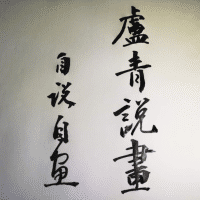 盧青說畫
自说自画